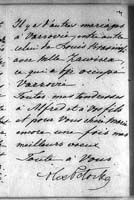 Il y a d'autres mariages
à Varsovie, entre autre
celui de Louis Krasins
avec Melle Zawisza
ce qui a fort occupé
Varsovie
Toutes mes tendresses
à Alfred et à vos fils
et pour vous chère Marie
encore une fois mes
meilleurs voeux
Toute à Vous